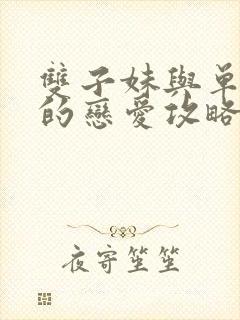 雙子妹與單
的戀愛攻略
夜寄笙笙